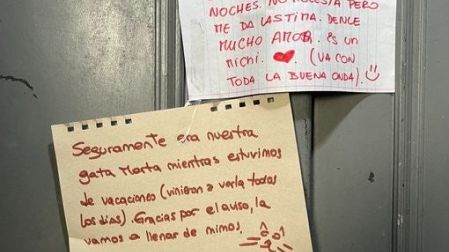 NOCHES. NO MOLESTA PERO
ME DA LASTIMA. DENLE
MUCHO AMOR. ES UN
MICHI. ❤ (VA CON
TODA LA BUENA ONDA). :)
Seguramente era nuestra
gata Marta mientras estuvimos
de vacaciones (vinieron a verla todos
los días). Gracias por el aviso, la
vamos a llenar de mimos!